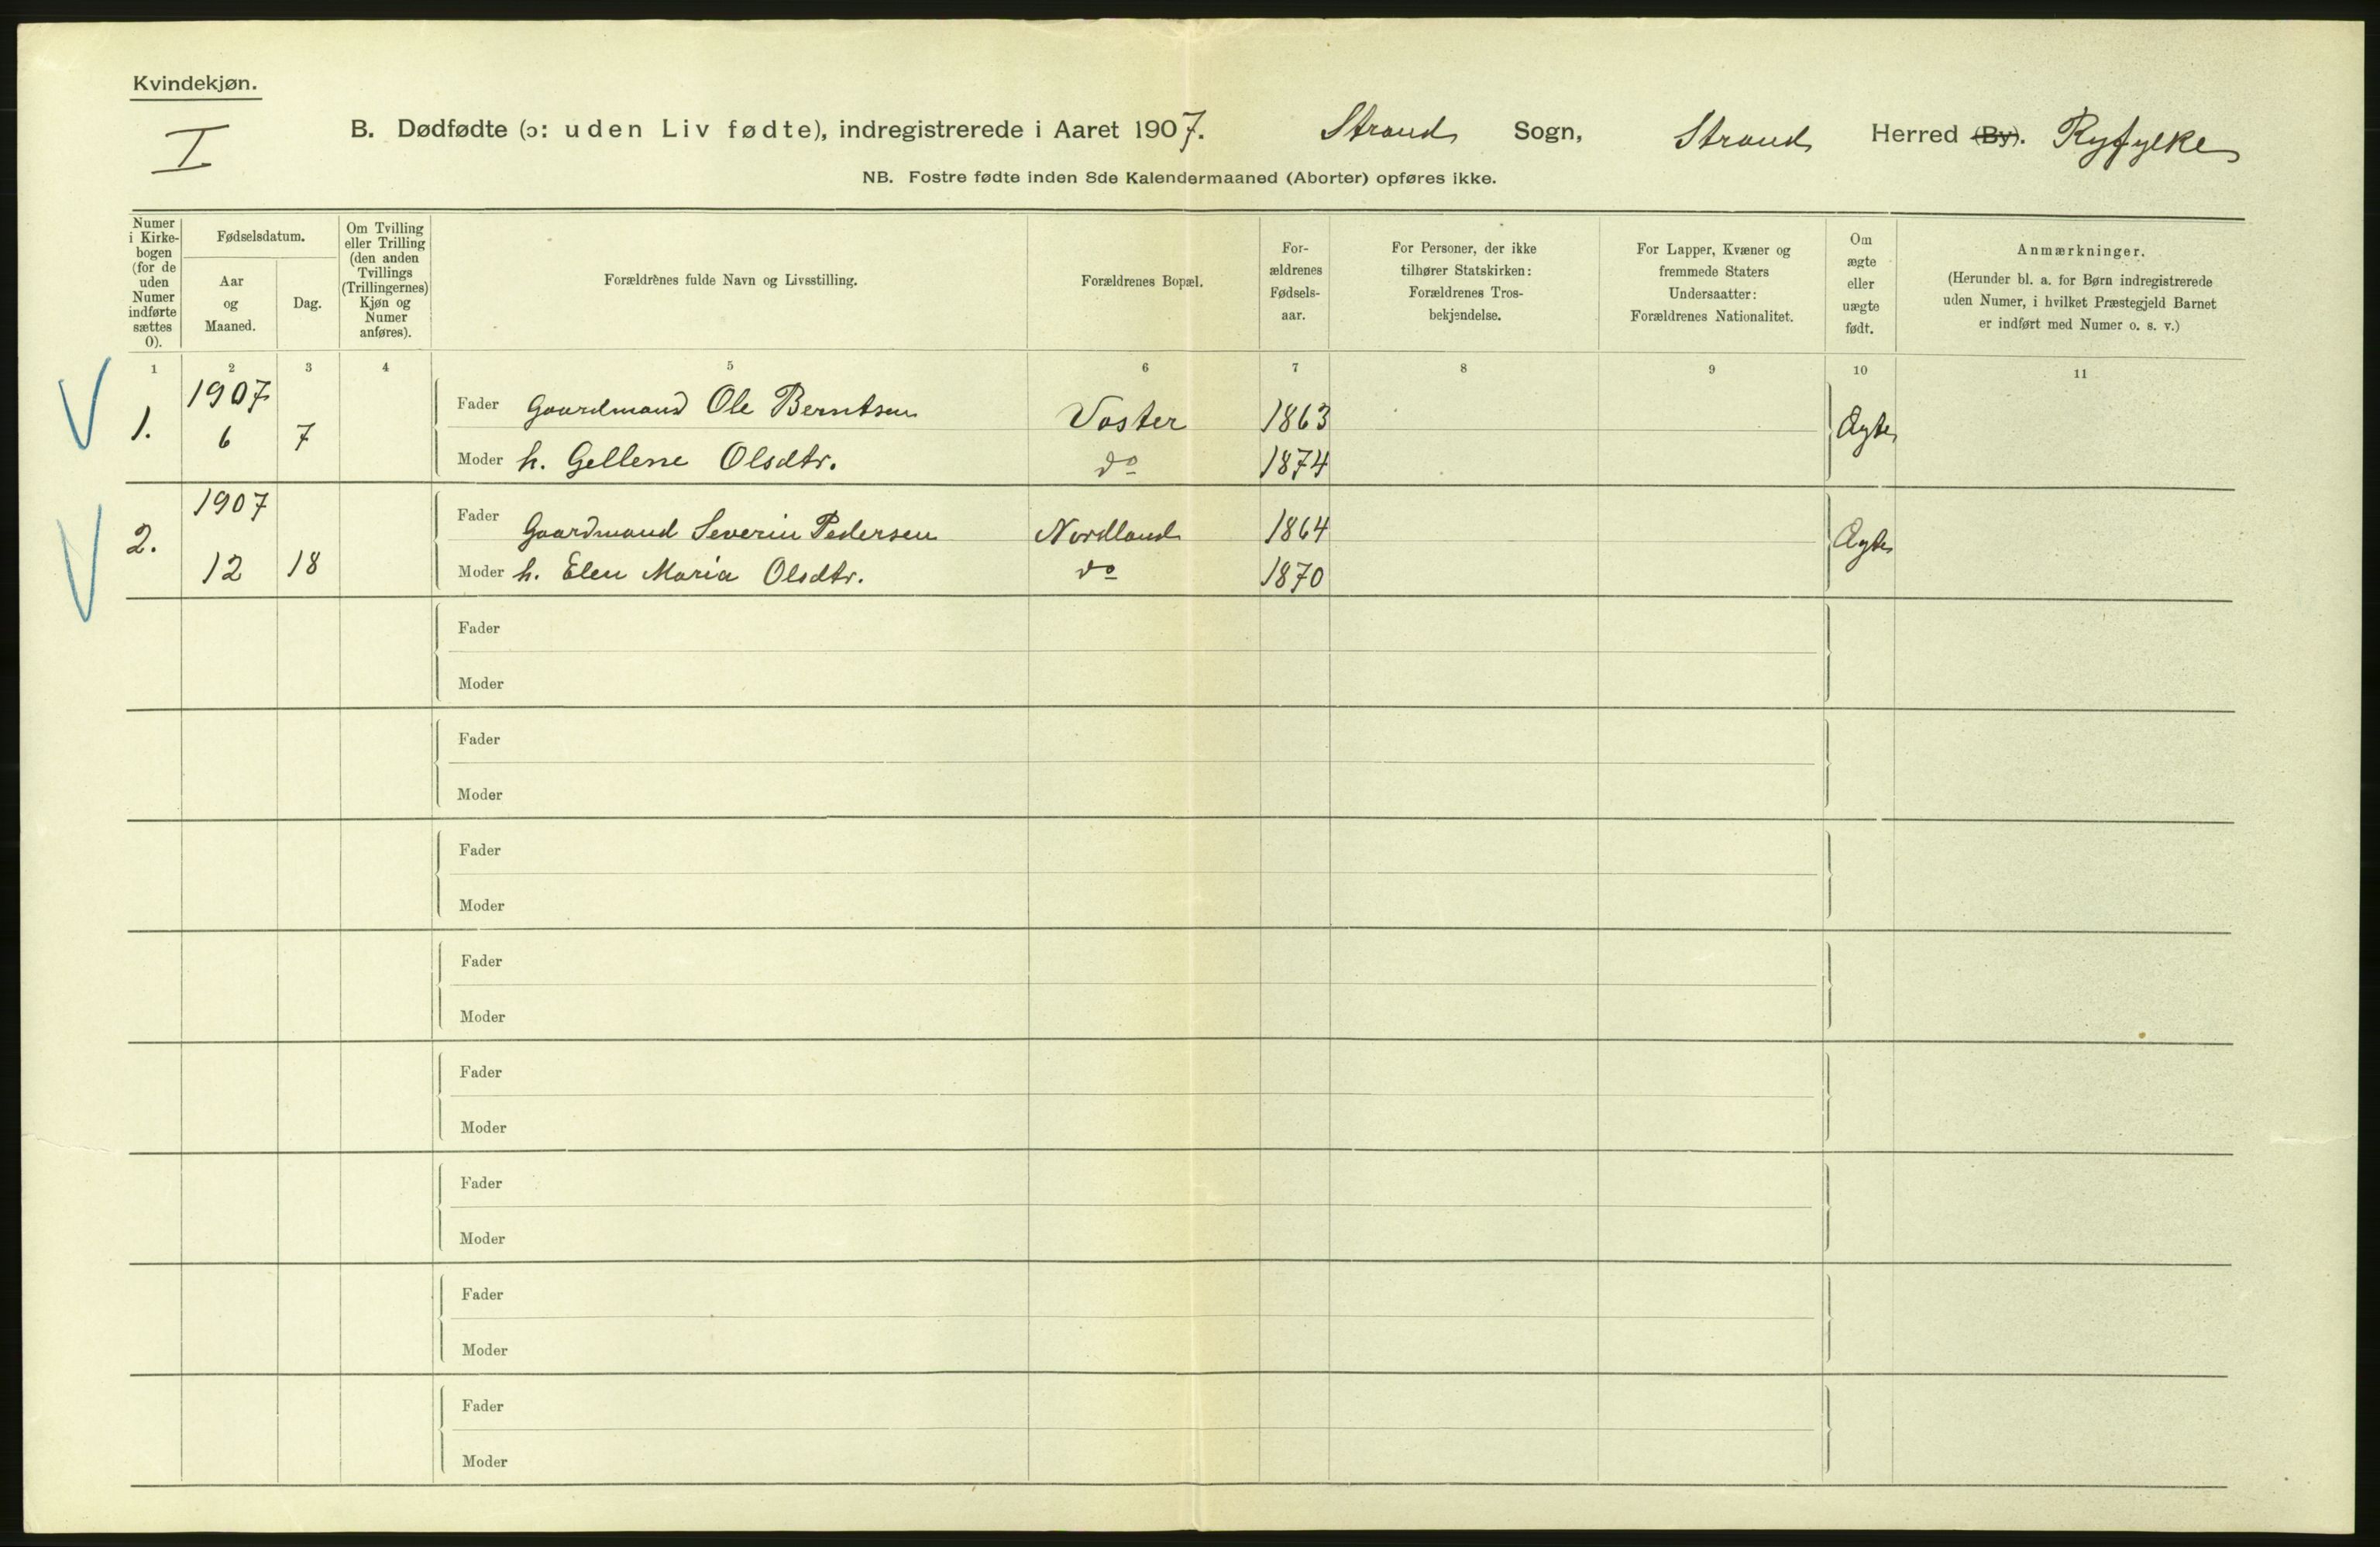 Kvindekjøn.
I
B. Dødfødte (ɔ: uden Liv fødte), indregistrerede i Aaret 1907. Strand Sogn, Strand Herred (By). Ryfylke
NB. Fostre fødte inden 8de Kalendermaaned (Aborter) opføres ikke.
Numer i Kirkebogen (for de uden Numer indførte sættes 0).
Fødselsdatum.
Aar og Maaned.
Dag.
Om Tvilling eller Trilling (den anden Tvillings (Trillingernes) Kjøn og Numer anføres).
Forældrenes fulde Navn og Livsstilling.
Forældrenes Bopæl.
Forældrenes Fødselsaar.
For Personer, der ikke tilhører Statskirken: Forældrenes Trosbekjendelse.
For Lapper, Kvæner og fremmede Staters Undersaatter: Forældrenes Nationalitet.
Om ægte eller uægte født.
Anmærkninger.
(Herunder bl. a. for Børn indregistrerede uden Numer, i hvilket Præstegjeld Barnet er indført med Numer o. s. v.)
1 2 3 4 5 6 7 8 9 10 11
V 1. 1907 6 7 Fader Gaardmand Ole Berntsen Voster 1863 Ægte
Moder h. Gellene Olsdtr. do 1874
V 2. 1907 12 18 Fader Gaardmand Severin Pedersen Nordland 1864 Ægte
Moder h. Elen Maria Olsdtr. do 1870
Fader
Moder
Fader
Moder
Fader
Moder
Fader
Moder
Fader
Moder
Fader
Moder
Fader
Moder
Fader
Moder